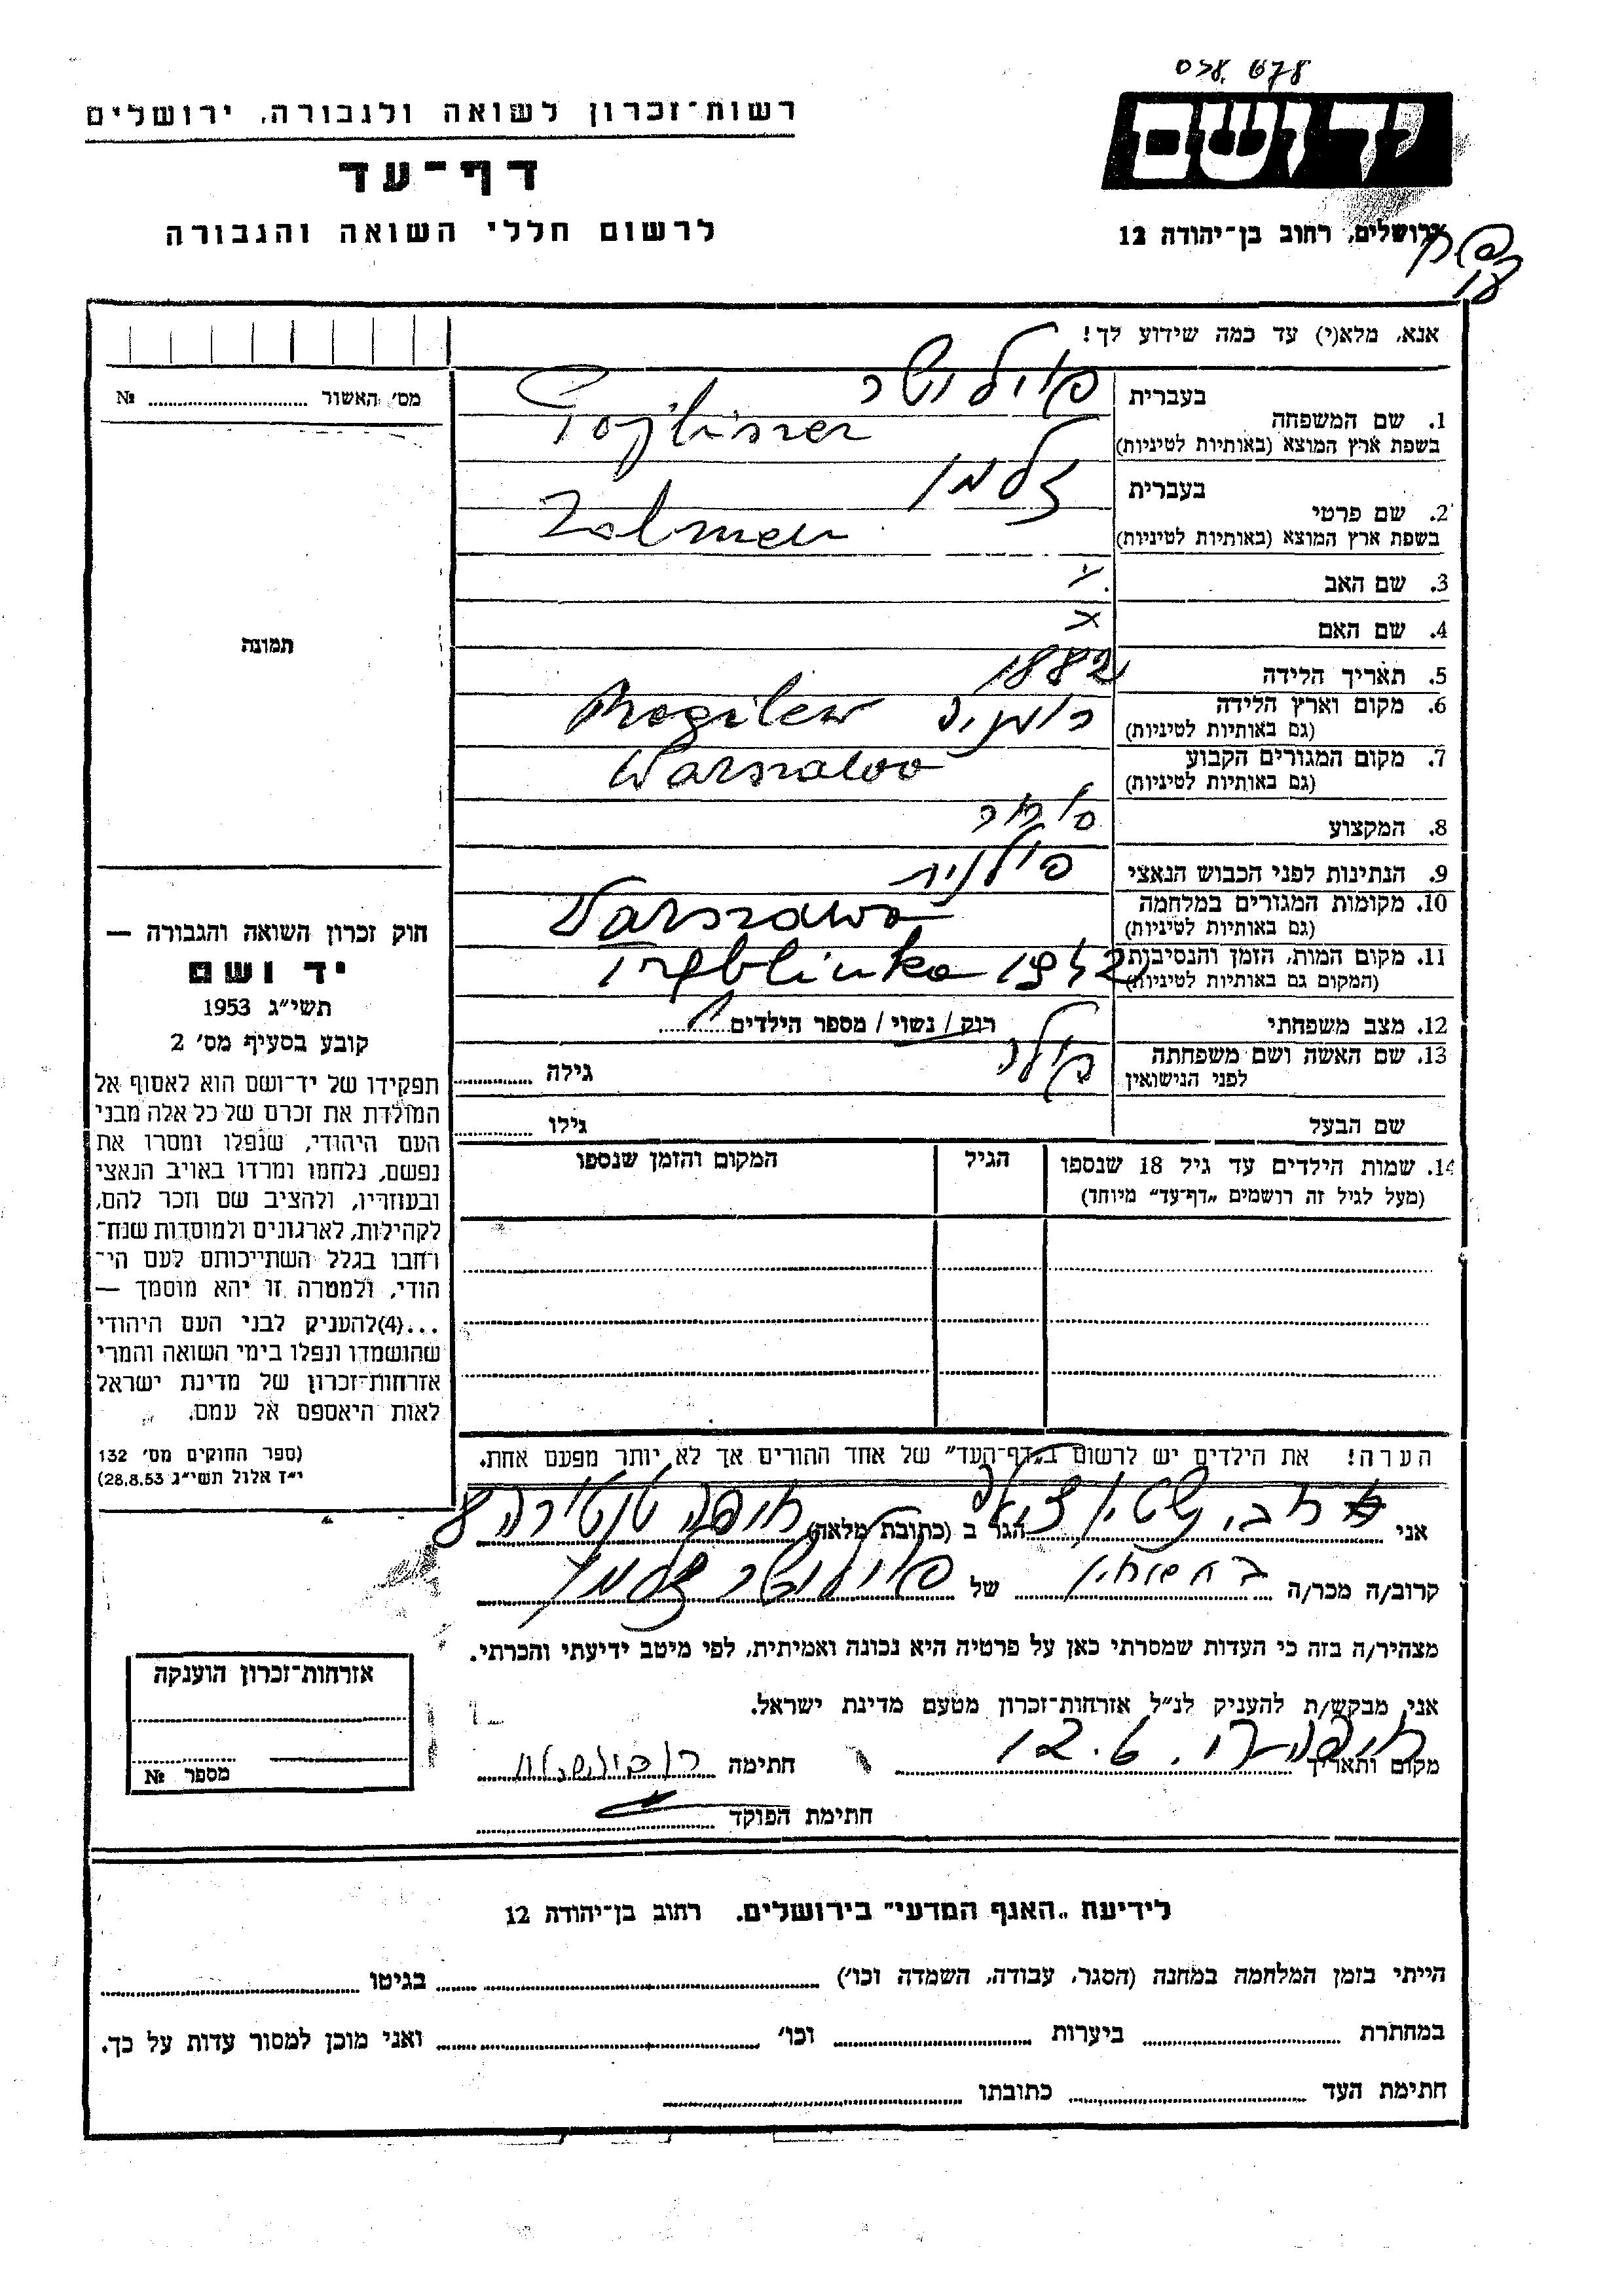 רשות־זכרון לשואה ולגבורה, ירושלים
דף־עד
לרשום חללי השואה והגבורה
יד ושם
ירושלים, רחוב בן־יהודה 12
אנא, מלא(י) עד כמה שידוע לך!
מס׳ האשור № 
1. שם המשפחה
בעברית פוילישר
בשפת ארץ המוצא (באותיות לטיניות) Pojliszer
2. שם פרטי
בעברית זלמן
בשפת ארץ המוצא (באותיות לטיניות) Zalman
3. שם האב
4. שם האם
5. תאריך הלידה 1882
6. מקום וארץ הלידה רומניה Mogilew
(גם באותיות לטיניות)
7. מקום המגורים הקבוע Warszawa
(גם באותיות לטיניות)
8. המקצוע סוחר
9. הנתינות לפני הכבוש הנאצי פולנית
10. מקומות המגורים במלחמה Warszawa
(גם באותיות לטיניות)
11. מקום המות, הזמן והנסיבות Treblinka 1942
(המקום גם באותיות לטיניות)
12. מצב משפחתי רוק / נשוי / מספר הילדים
13. שם האשה ושם משפחתה
לפני הנישואין
גילה
שם הבעל גילו
14. שמות הילדים עד גיל 18 שנספו הגיל המקום והזמן שנספו
(מעל לגיל זה רושמים „דף־עד” מיוחד)
תמונה
חוק זכרון השואה והגבורה —
יד ושם
תשי״ג 1953
קובע בסעיף מס׳ 2
תפקידו של יד־ושם הוא לאסוף אל
המולדת את זכרם של כל אלה מבני
העם היהודי, שנפלו ומסרו את
נפשם, נלחמו ומרדו באויב הנאצי
ובעוזריו, ולהציב שם וזכר להם,
לקהילות, לארגונים ולמוסדות שנח־
רחבו בגלל השתייכותם לעם הי־
הודי, ולמטרה זו יהא מוסמך —
...(4)להעניק לבני העם היהודי
שהושמדו ונפלו בימי השואה והמרי
אזרחות־זכרון של מדינת ישראל
לאות היאספם אל עמם.
(ספר החוקים מס׳ 132
י״ז אלול תשי״ג 28.8.53)
הערה! את הילדים יש לרשום ב„דף־העד” של אחד ההורים אך לא יותר מפעם אחת.
אני הגר ב (כתובת מלאה) חיפה
קרוב/ה מכר/ה של פוילישר זלמן
מצהיר/ה בזה כי העדות שמסרתי כאן על פרטיה היא נכונה ואמיתית, לפי מיטב ידיעתי והכרתי.
אני מבקש/ת להעניק לנ״ל אזרחות־זכרון מטעם מדינת ישראל.
מקום ותאריך חיפה 12.6 חתימה
חתימת הפוקד
אזרחות־זכרון הוענקה
מספר №
לידיעת „האגף המדעי” בירושלים. רחוב בן־יהודה 12
הייתי בזמן המלחמה במחנה (הסגר, עבודה, השמדה וכו׳) בגיטו
במחתרת ביערות וכו׳ ואני מוכן למסור עדות על כך.
חתימת העד כתובתו